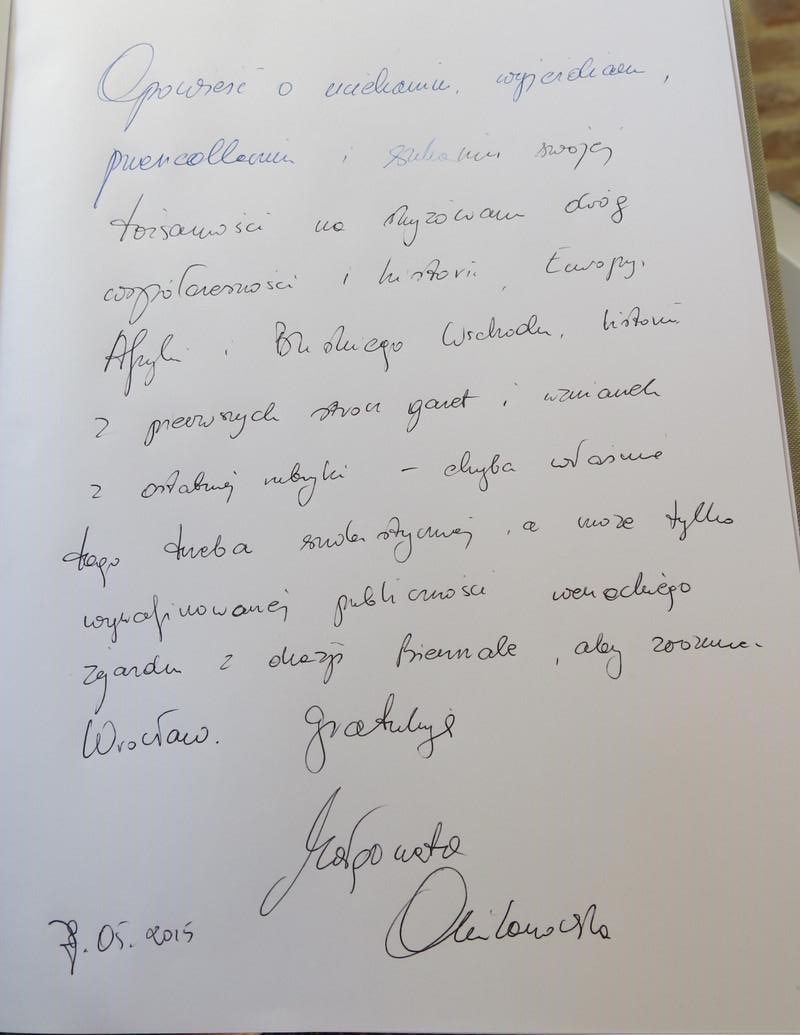 Opowieść o uciekaniu, wyjeżdżaniu,
i szukaniu swojej
tożsamości na skrzyżowaniu dróg
współczesności i historii, Europy,
Afryki i Bliskiego Wschodu, historii
z pierwszych stron gazet i wzmianek
z ostatniej rubryki – chyba właśnie
tego trzeba snobistycznej, a może tylko
wyrafinowanej publiczności weneckiego
zjazdu z okazji Biennale, aby
Wrocław. Gratuluję
Małgorzata
Omilanowska
05.2015